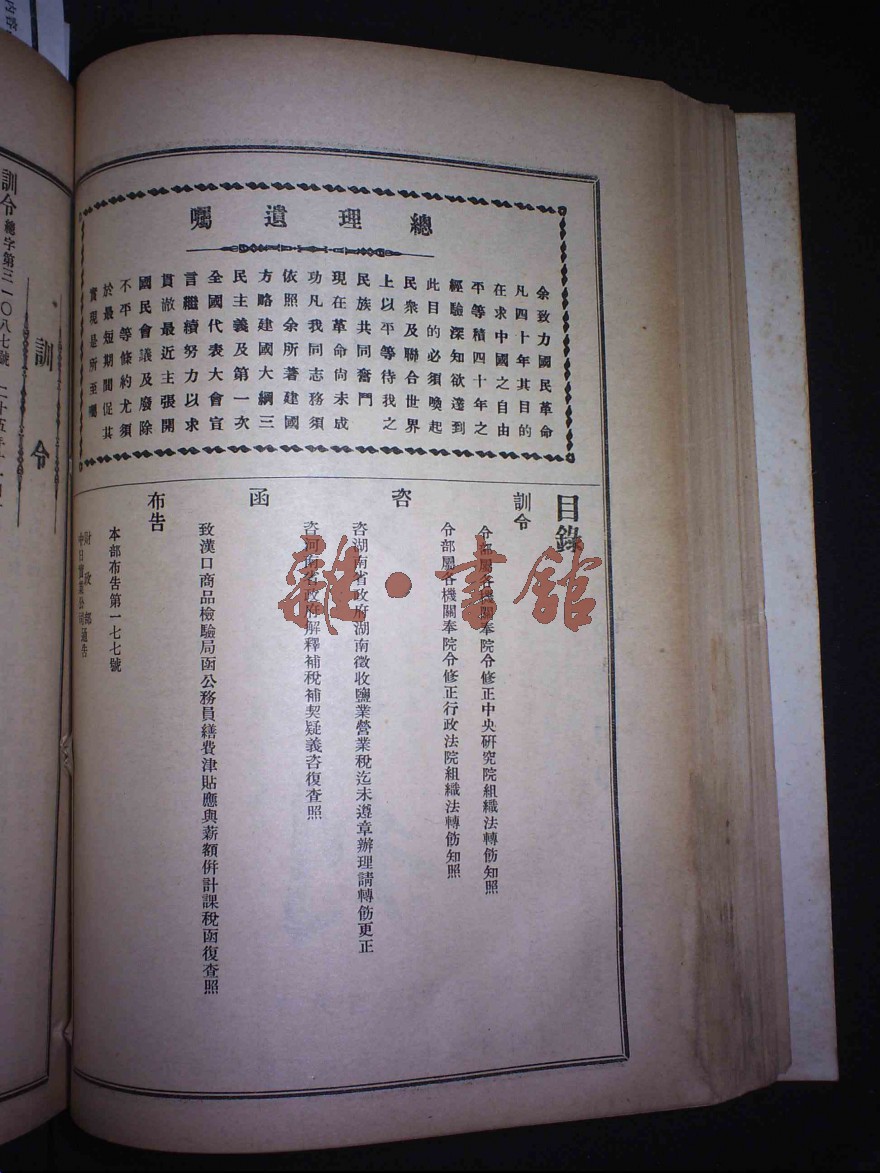 總理遺囑
余致力國民革命
凡四十年其目的
在求中國之自由
平等積四十年之
經驗深知欲達到
此目的必須喚起
民衆及聯合世界
上以平等待我之
民族共同奮鬥
現在革命尙未成
功凡我同志務須
依照余所著建國
方略建國大綱三
民主義及第一次
全國代表大會宣
言繼續努力以求
貫澈最近主張開
國民會議及廢除
不平等條約尤須
於最短期間促其
實現是所至囑
目錄
訓令
令部屬各機關奉院令修正中央硏究院組織法轉飭知照
令部屬各機關奉院令修正行政法院組織法轉飭知照
咨
咨湖南省政府湖南徵收鹽業營業稅迄未遵章辦理請轉飭更正
咨河南省政府解釋補稅補契疑義咨復查照
函
致漢口商品檢驗局函公務員繕費津貼應與薪額倂計課稅函復查照
布告
本部布告第一七七號
財政部
中日實業公司通告
訓令
訓令 總字第三一〇八七號
雜·書館